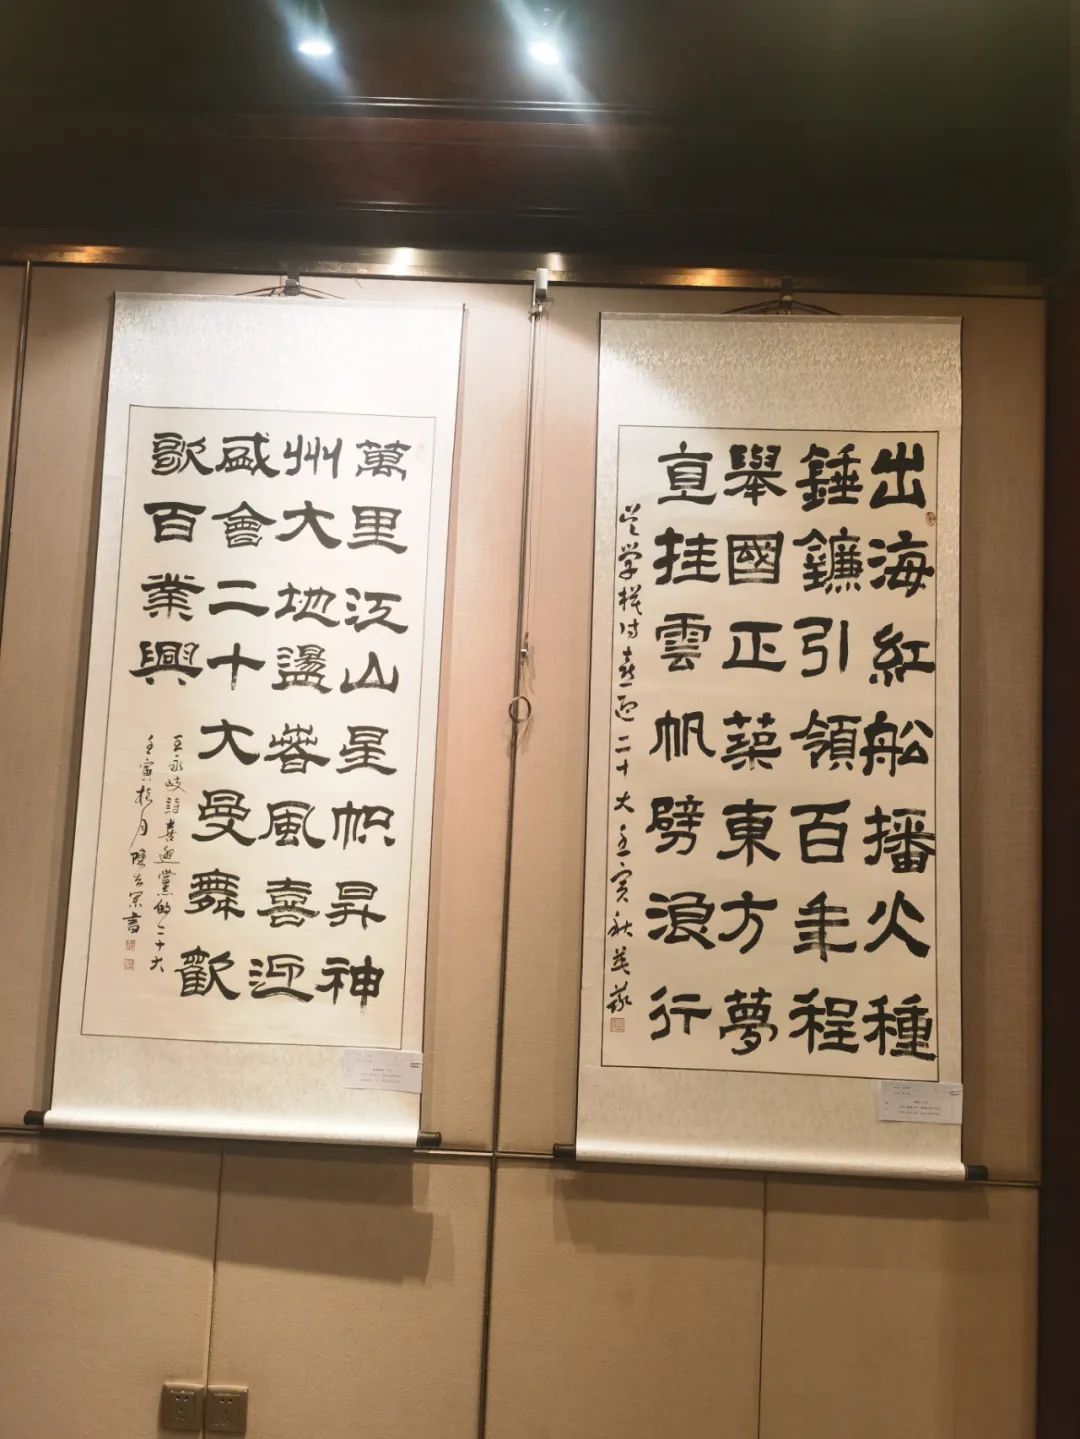 出海紅船播火種
錘鐮引領百年程
舉國正築東方夢
直挂雲帆劈浪行
喜迎二十大壬寅秋
萬里江山星幟昇神
州大地盪春風喜迎
盛會二十大曼舞歡
歌百業興
王永岐詩喜迎黨的二十大
壬寅桂月陳
書